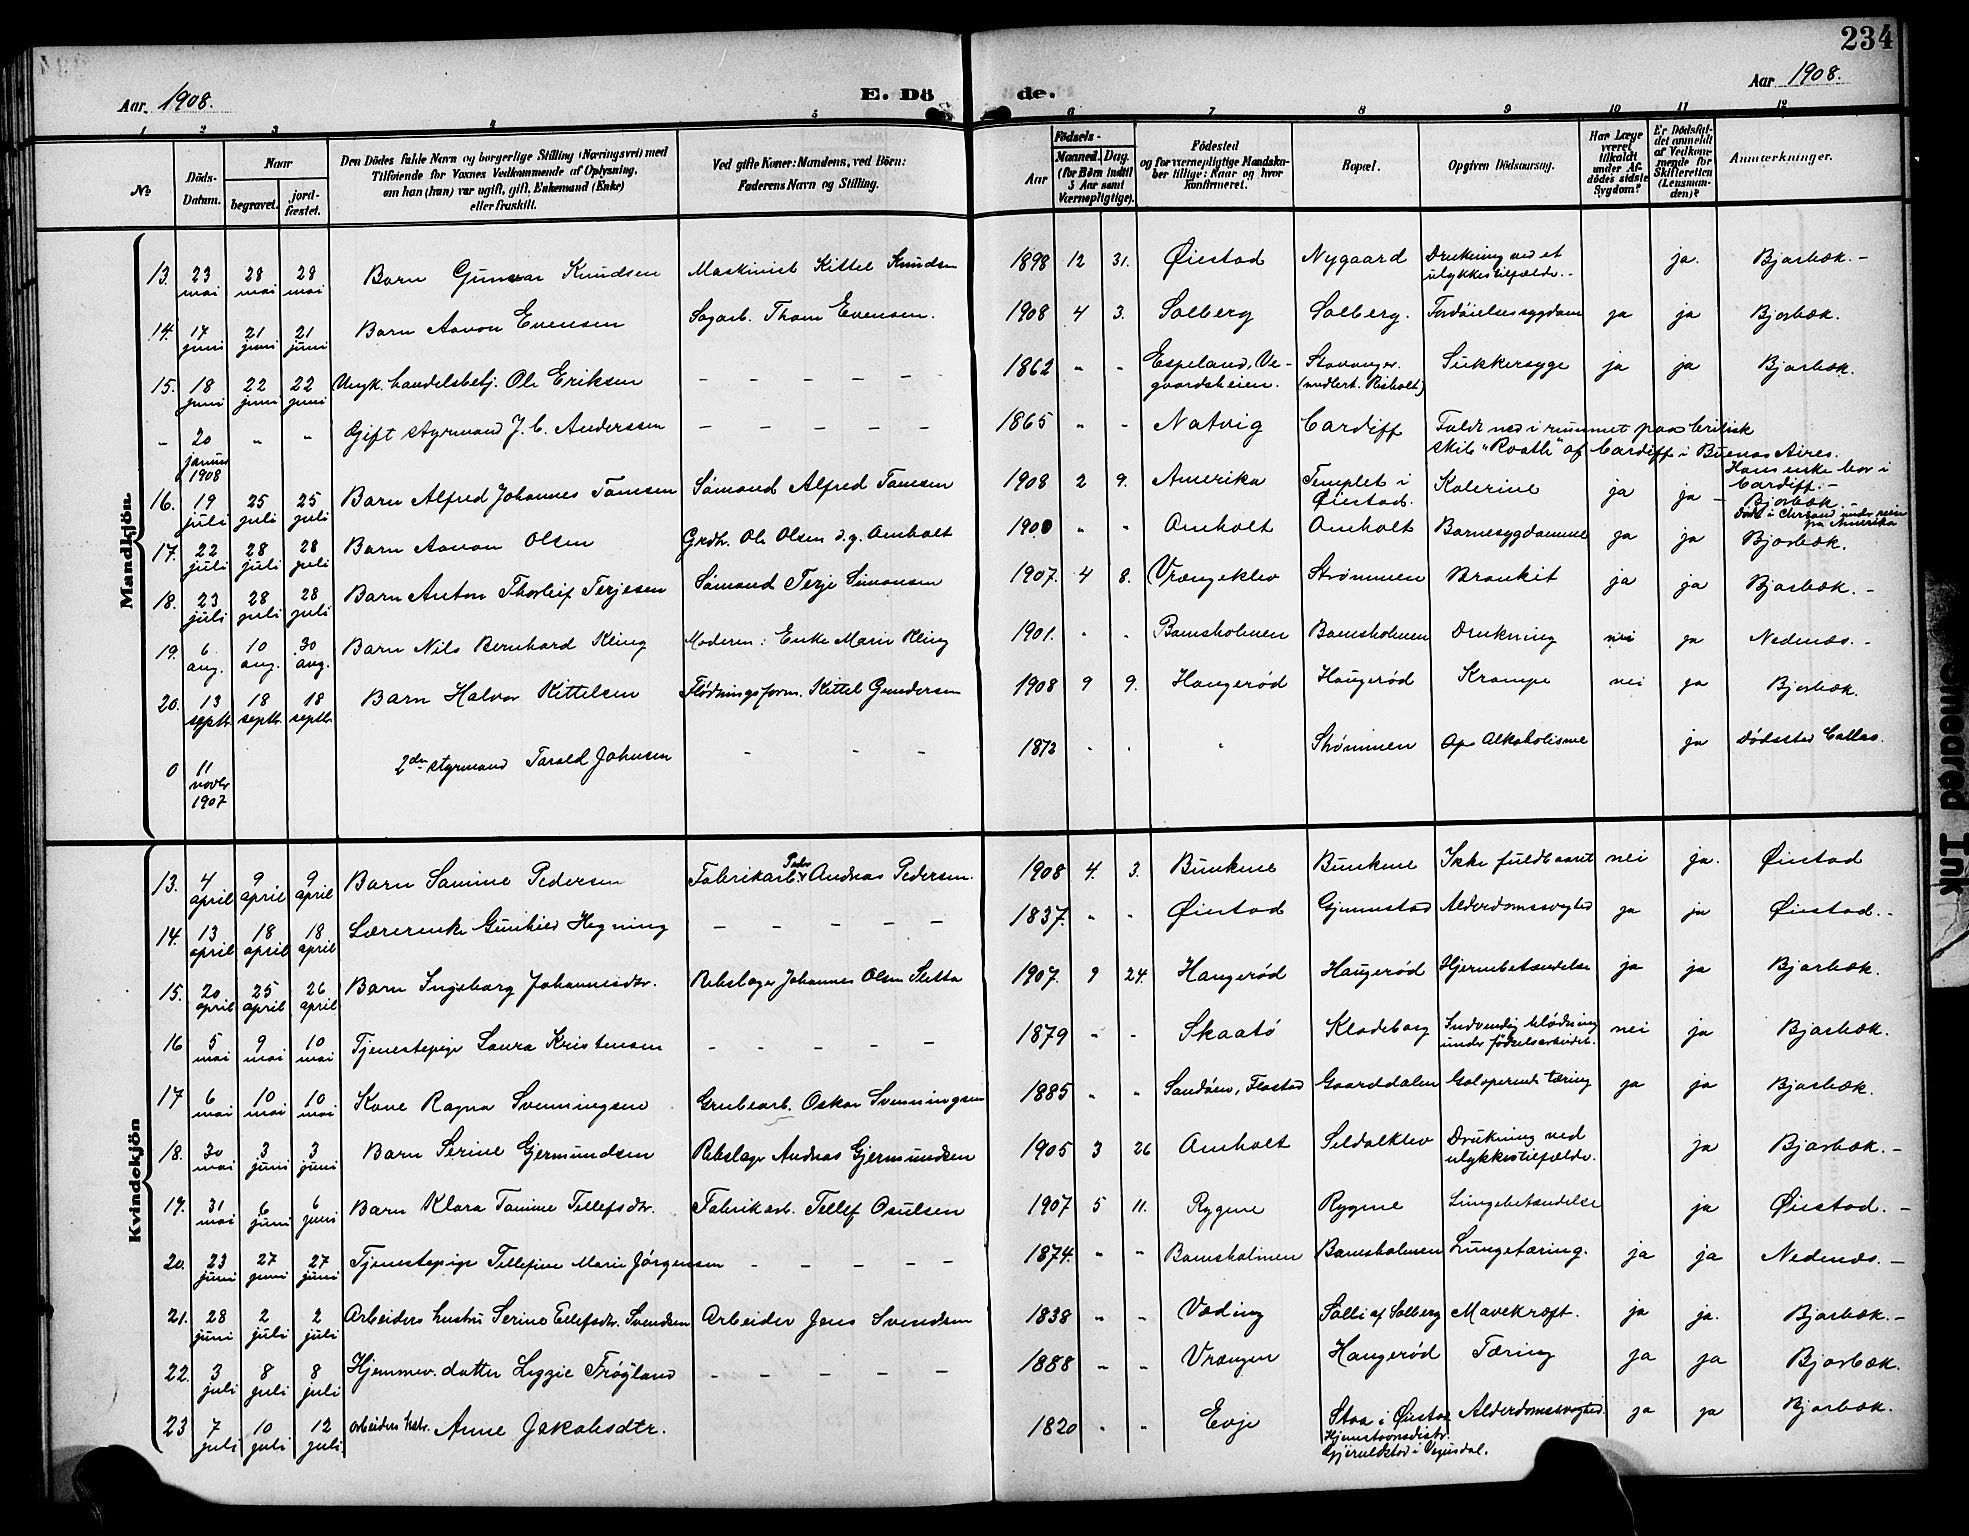 234
Aar 1908.
E. Dö
de.
Aar 1908.
1 2 3 4 5 6 7 8 9 10 11 12
№
Döds-Datum.
Naar
begravet.
jordfæstet.
Den Dödes fulde Navn og borgerlige Stilling (Næringsvei) med
Tilföiende for Voxnes Vedkommende af Oplysning,
om han (hun) var ugift, gift, Enkemand (Enke)
eller fraskilt.
Ved gifte Koner: Mandens, ved Börn:
Faderens Navn og Stilling.
Födsels-
Aar
Maaned. Dag.
(for Börn indtil
3 Aar samt
Værnepligtige).
Födested
og for værnepligtige Mandska-
ber tillige: Naar og hvor
konfirmeret.
Bopæl.
Opgiven Dödsaarsag.
Har Læge
været
tilkaldt
under Af-
dödes sidste
Sygdom?
Er Dödsfal-
det anmeldt
af Vedkom-
mende for
Skifteretten
(Lensman-
den)?
Anmærkninger.
Mandkjön
13. 23 mai 28 mai 28 mai Barn Gunvar Knudsen Maskinist Kittel Knudsen 1898 12 31. Øiestad Nygaard Drukning ved et ulykkestilfælde.- ja. Bjorbæk.-
14. 17 juni 21 juni 21 juni Barn Aavon Evensen Sagarb. Thom Evensen. 1908 4 3. Solberg Solberg. Fordöielsessygdom ja ja Bjorbæk.
15. 18 juni 22 juni 22 juni Ungk. handelsbetj. Ole Eriksen - - - - - 1862 " " Espeland, Vegaardsheien. Stavanger. (midlert. Risholt) Sukkersyge ja ja Bjorbæk.
- 20 januar 1908 " " Gift styrmand J. C. Anderssen - - - - - 1865 " " Natvig Cardiff Faldt ned i rummet paa britisk skib "Roath" af Cardiff i Buenos Aires. Hans enke bor i Cardiff.-
16. 19 juli 25 juli 25 juli Barn Alfred Johannes Tomsen Sömand Alfred Tomsen 1908 2 9. Amerika Templet i Øiestad. Kolerine ja ja - Bjorbæk. Född i Chrsand under reise fra Amerika
17. 22 juli 28 juli 28 juli Barn Aavon Olsen Grdb. Ole Olsen d.y. Omholt 1900 " " Omholt Omholt Barnesygdomme ja ja Bjorbæk.
18. 23 juli 28 juli 28 juli Barn Anton Thorleif Terjesen Sömand Terje Simonsen 1907. 4 8. Vrængeklev Strømmen Bronkit ja ja Bjorbæk.-
19. 6 aug. 10 aug. 30 aug. Barn Nils Bernhard Kling Moderen: Enke Marie Kling 1901. " " Bomsholmen Bomsholmen Drukning nei ja Nedenæs.-
20. 13 septb. 18 septb. 18 septb. Barn Halvor Kittelsen Flödningsform. Kittel Gundersen 1908 9 9. Haugerød Haugerød Krampe nei ja Bjorbæk.
0 11 novbr 1907 2den styrmand Tarald Johnsen - - - 1872 " " " Strømmen Op. Alkoholisme ja Dödssted Callao.
Kvindekjön
13. 4 april 9 april 9 april Barn Samine Pedersen Fabrikarb. Peder Andreas Pedersen. 1908 4. 3. Bunkene Bunkene Ikke fuldbaaret nei ja. Øiestad
14. 13 april 18 april 18 april Lærerenke Gunhild Hegning - - - - - 1837. " " Øiestad Gjennestad Alderdomssvaghed ja ja Øiestad.-
15. 20 april 25 april 26 april Barn Ingeborg Johannesdtr. Rebslager Johannes Olsen Sletta 1907. 9 24. Haugerød Haugerød Hjernebetændelse ja ja Bjorbæk.
16 5 mai 9 mai 10 mai Tjenestepige Laura Kristensen - - - - - 1879 " - Skaatö Klodeborg Indvendig blödning under fødselsarbeidet. nei ja Bjorbæk.
17 6 mai 10 mai 10 mai Kone Ragna Svenningsen Grubearb. Oskar Svenningsen 1885 " " Sandöen, Flostad Gaarddalen Galoperende tæring ja ja Bjorbæk.
18. 30 mai 3 juni 3 juni Barn Serine Gjermundsen Rebslager Andreas Gjermundsen 1905 3 26 Omholt Seldalklev Drukning ved ulykkestilfælde. ja Bjorbæk.-
19. 31 mai 6 juni 6 juni Barn Klara Tomine Tellefsdtr. Fabrikarb. Tellef Osulsen 1907 5 11. Rygene Rygene Lungebetændelse ja Øiestad.-
20. 23 juni 27 juni 27 juni Tjenestepige Tellefine Marie Jörgensen - - - - - 1874. " " Bomsholmen Bomsholmen Lungetæring. ja ja Nedenæs.-
21. 28 juni 2 juli 2 juli Arbeiders hustru Serine Tellefsdtr. Svendsen Arbeider Jens Svendsen 1838 " " Vading Salli af Solberg Mavekræft. ja ja. Bjorbæk.-
22. 3 juli 8 juli 8 juli Hjemmev. datter Lizzie Frøyland - - - - - 1888 " " Vrængen Haugerød Tæring ja ja Bjorbæk.
23 7 juli 10 juli 12 juli Arbeiders hstr. Anne Jakobsdtr. 1820 " " Evje Staa i Øiestad Hjemstavnsdistr. Gjerulstad i Vegusdal. Alderdomssvaghed. ja ja Bjorbæk.
Smeared Ink